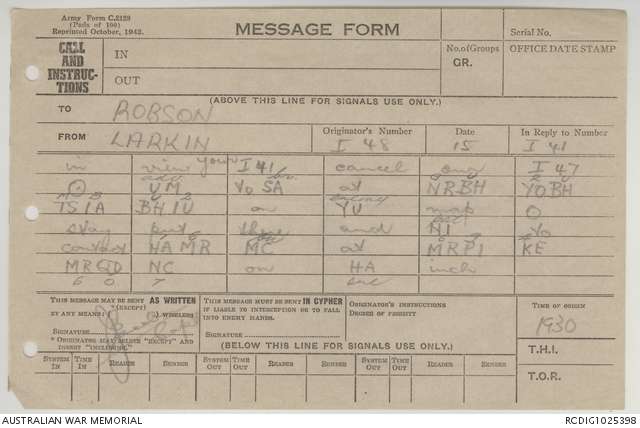 Army Form C.2128
(Pads of 100)
Reprinted October, 1942.
MESSAGE FORM
Serial No.
CALL AND INSTRUCTIONS
IN
OUT
No. of Groups
GR.
OFFICE DATE STAMP
(ABOVE THIS LINE FOR SIGNALS USE ONLY.)
TO ROBSON
FROM LARKIN
Originator's Number I 48
Date 15
In Reply to Number I 41
in view your I 41 cancel my I 47
O UM YO SA at NRBH YOBH
IS IA BH IU on YU map O
stay put there and NI YO
contact HA MR MC at MRPI KE
MRQD NC on HA inch
6 0 7
THIS MESSAGE MAY BE SENT AS WRITTEN
(EXCEPT)
BY ANY MEANS ( ) WIRELESS
SIGNATURE
* ORIGINATOR MAY DELETE "EXCEPT" AND INSERT "INCLUDING."
THIS MESSAGE MUST BE SENT IN CYPHER
IF LIABLE TO INTERCEPTION OR TO FALL INTO ENEMY HANDS.
SIGNATURE
ORIGINATOR'S INSTRUCTIONS
DEGREE OF PRIORITY
TIME OF ORIGIN
1930
(BELOW THIS LINE FOR SIGNALS USE ONLY.)
T.H.I.
SYSTEM IN TIME IN READER SENDER SYSTEM OUT TIME OUT READER SENDER SYSTEM OUT TIME OUT READER SENDER
T.O.R.
AUSTRALIAN WAR MEMORIAL
RCDIG1025398